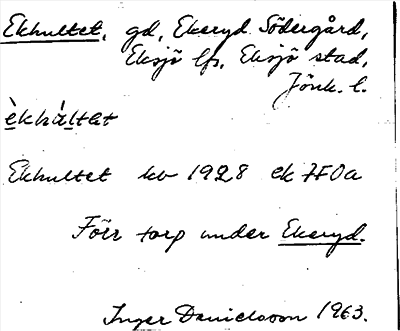 Ekhultet, gd, Ekeryd Södergård,
Eksjö lfs, Eksjö stad,
Jönk. l.
èkhàltət
Ekhultet kb 1928 ek 7F0a
Förr torp under Ekeryd.
Inger Danielsson 1963.